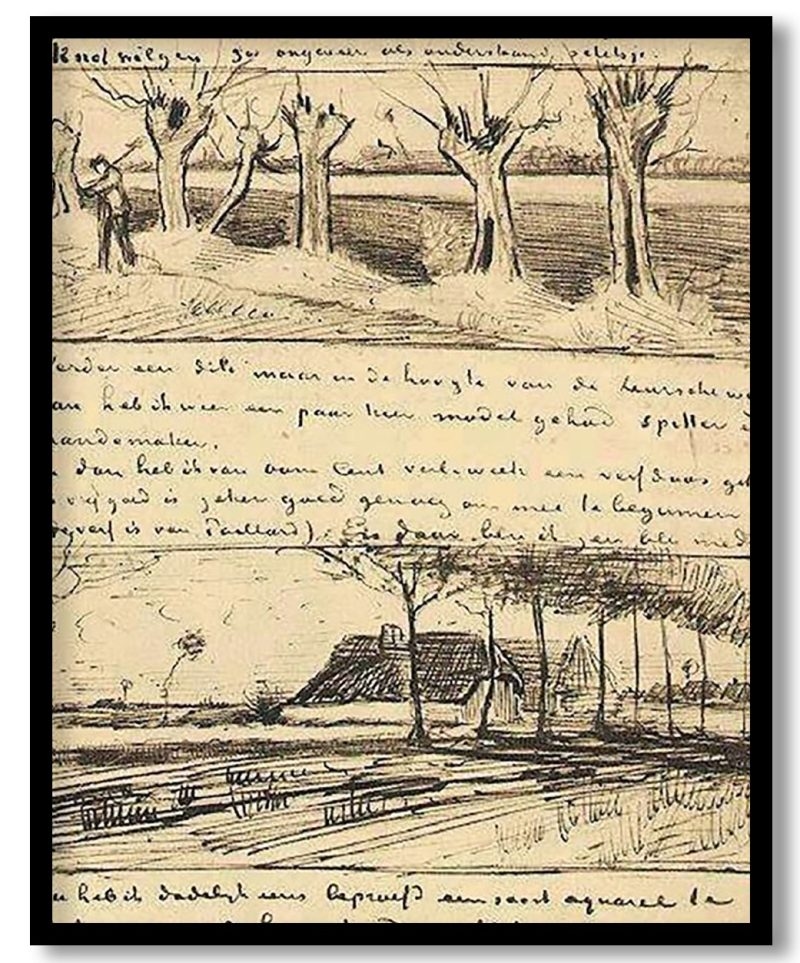 Knotwilgen zoo ongeveer als onderstaand schetsje.
verder een dito maar in de hoogte van de Leursche we
heb ik weer een paar keer model gehad spitter e
mandemaker.
dan heb ik van oom Cent verl. week een verfdoos ge
is zeker goed genoeg om mee te beginnen
verf is van Paillard). En daar ben ik zeer blij med
heb ik dadelijk eens beproefd een soort aquarel te